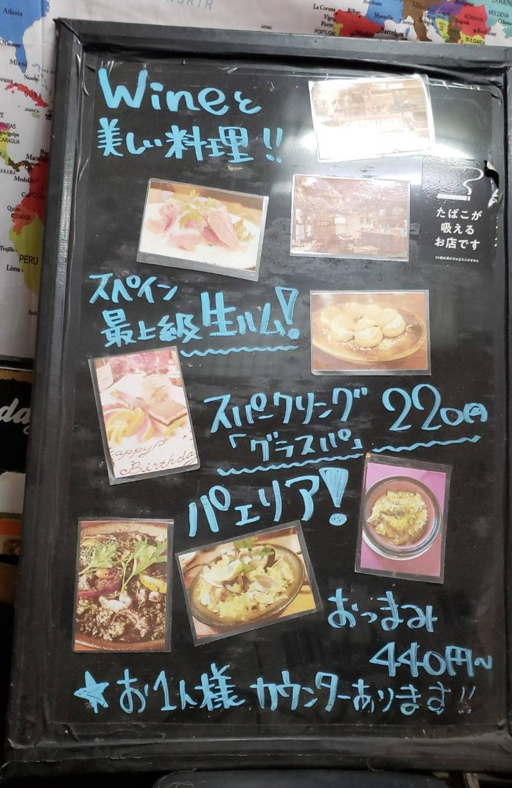 Wineと
美しい料理!!
たばこが
吸える
お店です
スペイン
最上級生ハム!
Happy
Birthday
スパークリング 220円
「グラスパ」
パェリア!
おつまみ
440円~
★お1人様 カウンターあります!!
PERU
Lima